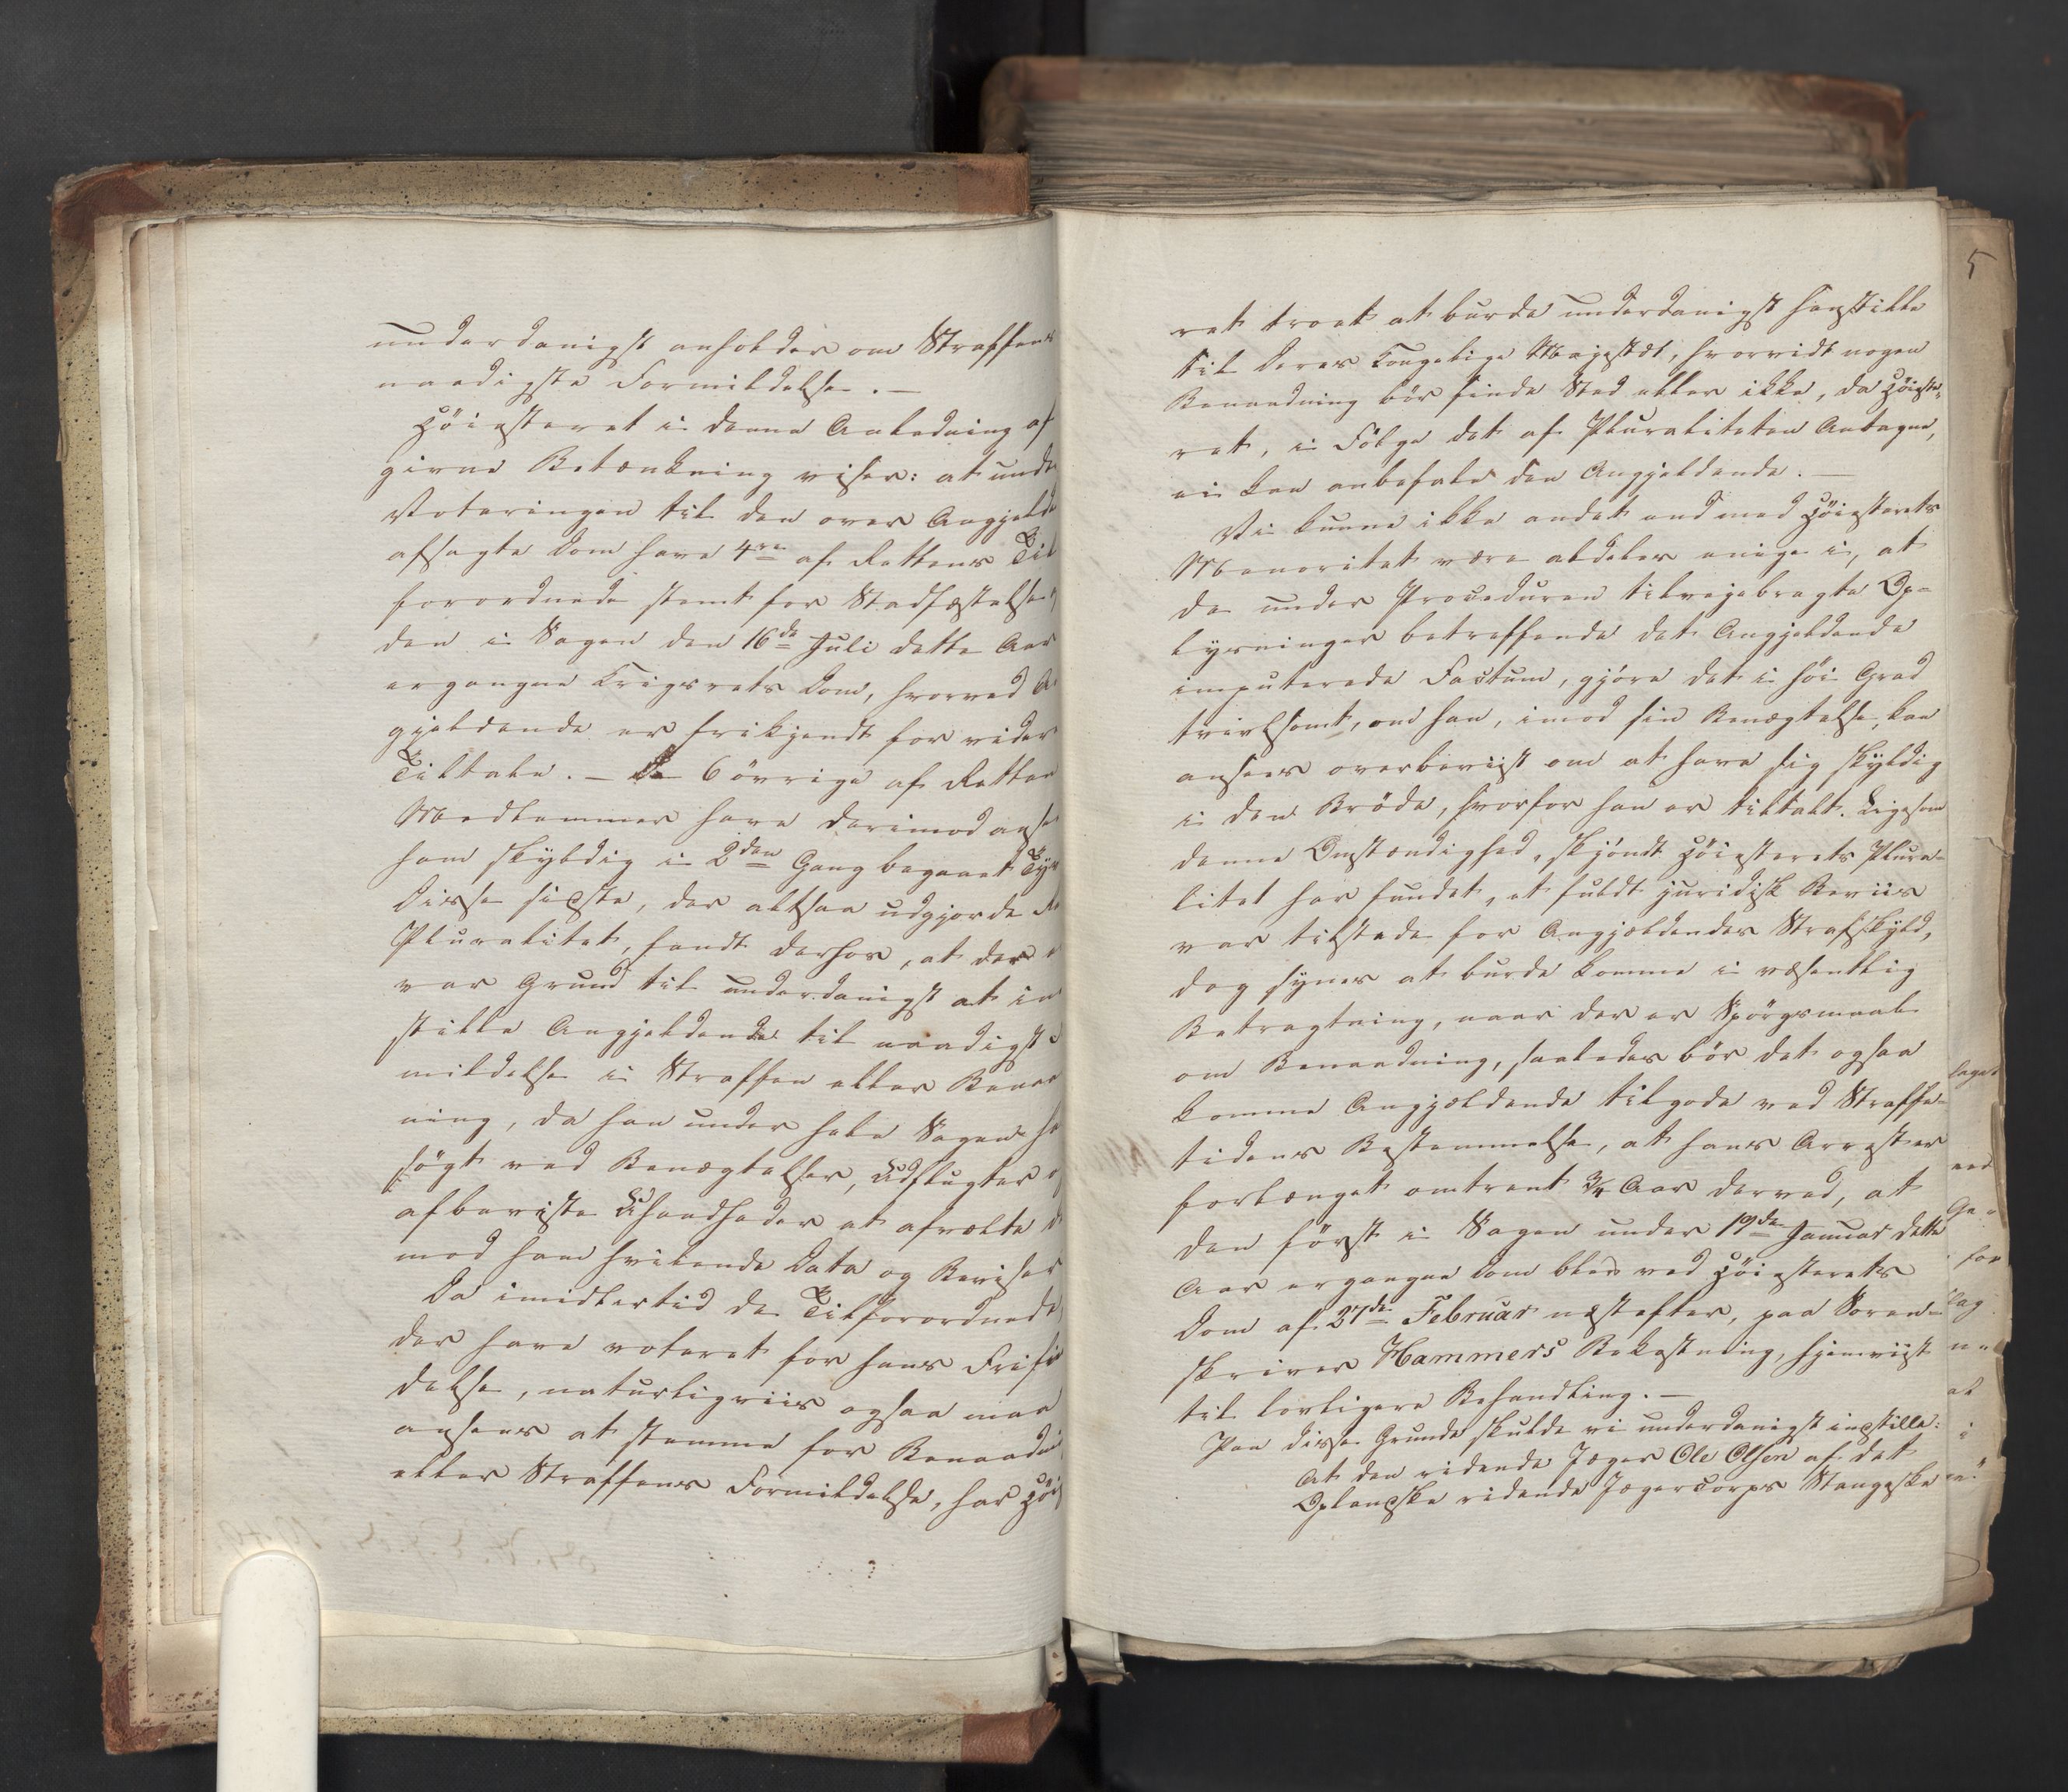 underdanigst anholder om Straffens
naadigste Formildelse. —
Höiesteret i denne Anledning af
givne Betænkning viser: at unde
Voteringen til den over Angjeld
afsagte Dom have 4re af Rettens Til
forordnede stemt for Stadfæstelse
den i Sagen den 16de Juli dette Aar
ergangne Krigsrets Dom, hvorved A
gjeldende er frikjendt for vider
Tiltale. — De 6 övrige af Retten
Medlemmer have derimod anse
ham skyldig i 2den Gang begaaet Tyv
Disse sidste, der altsaa udgjorde Re
Pluralitet, fandt derhos, at der
var Grund til underdanigst at in
stille Angjeldende til naadigst
mildelse i Straffen eller Benaa
ning, da han under hele Sagen ha
sögt ved Benægtelser, Udflugter o
afbeviste Usandheder at afvælte d
mod ham hvilende Data og Beviser
Da imidlertid de Tilforordnede,
der have voteret for hans Frifin
delse, naturligviis ogsaa maa
ansees at stemme for Benaadni
eller Straffens Formildelse, har Höie
5
ret troet at burde underdanigst henstille
til Deres Kongelige Majestæt, hvorvidt nogen
Benaadning bör finde Sted eller ikke, da Höieste-
ret, i Fölge det af Pluraliteten Antagne,
ei kan anbefale den Angjeldende. —
Vi kunne ikke andet end med Höiesterets
Menoritet være aldeles enige i, at
de under Proceduren tilvejebragte Op-
lysninger betreffende det Angjeldende
imputerede Factum, gjöre det i höi Grad
tvivlsomt, om han, imod sin Benægtelse, kan
ansees overbeviist om at have sig skyldig
i den Bröde, hvorfor han er tiltalt. Ligesom
denne Omstændighed, skjöndt Höiesterets Plura-
litet har fundet, at fuldt juridisk Beviis
var tilstede for Angjældendes Strafskyld,
dog synes at burde komme i væsentlig
Betragtning, naar der er Spörgsmaal
om Benaadning, saaledes bör det ogsaa
komme Angjældende tilgode ved Straffe-
tidens Bestemmelse, at hans Arrest er
forlænget omtrent 3/4 Aar derved, at
den först i Sagen under 19de Januar dette
Aar ergangne Dom blev ved Höiesterets
Dom af 27de Februar næstefter, paa Soren-
skriver Hammers Bekostning, hjemviist
til lovligere Behandling. —
Paa disse Grunde skulde vi underdanigst indstille:
At den ridende Jæger Ole Olsen af det
Oplandske ridende Jægercorps Stangeske
laget
ved
Ge-
for
lag
at
i